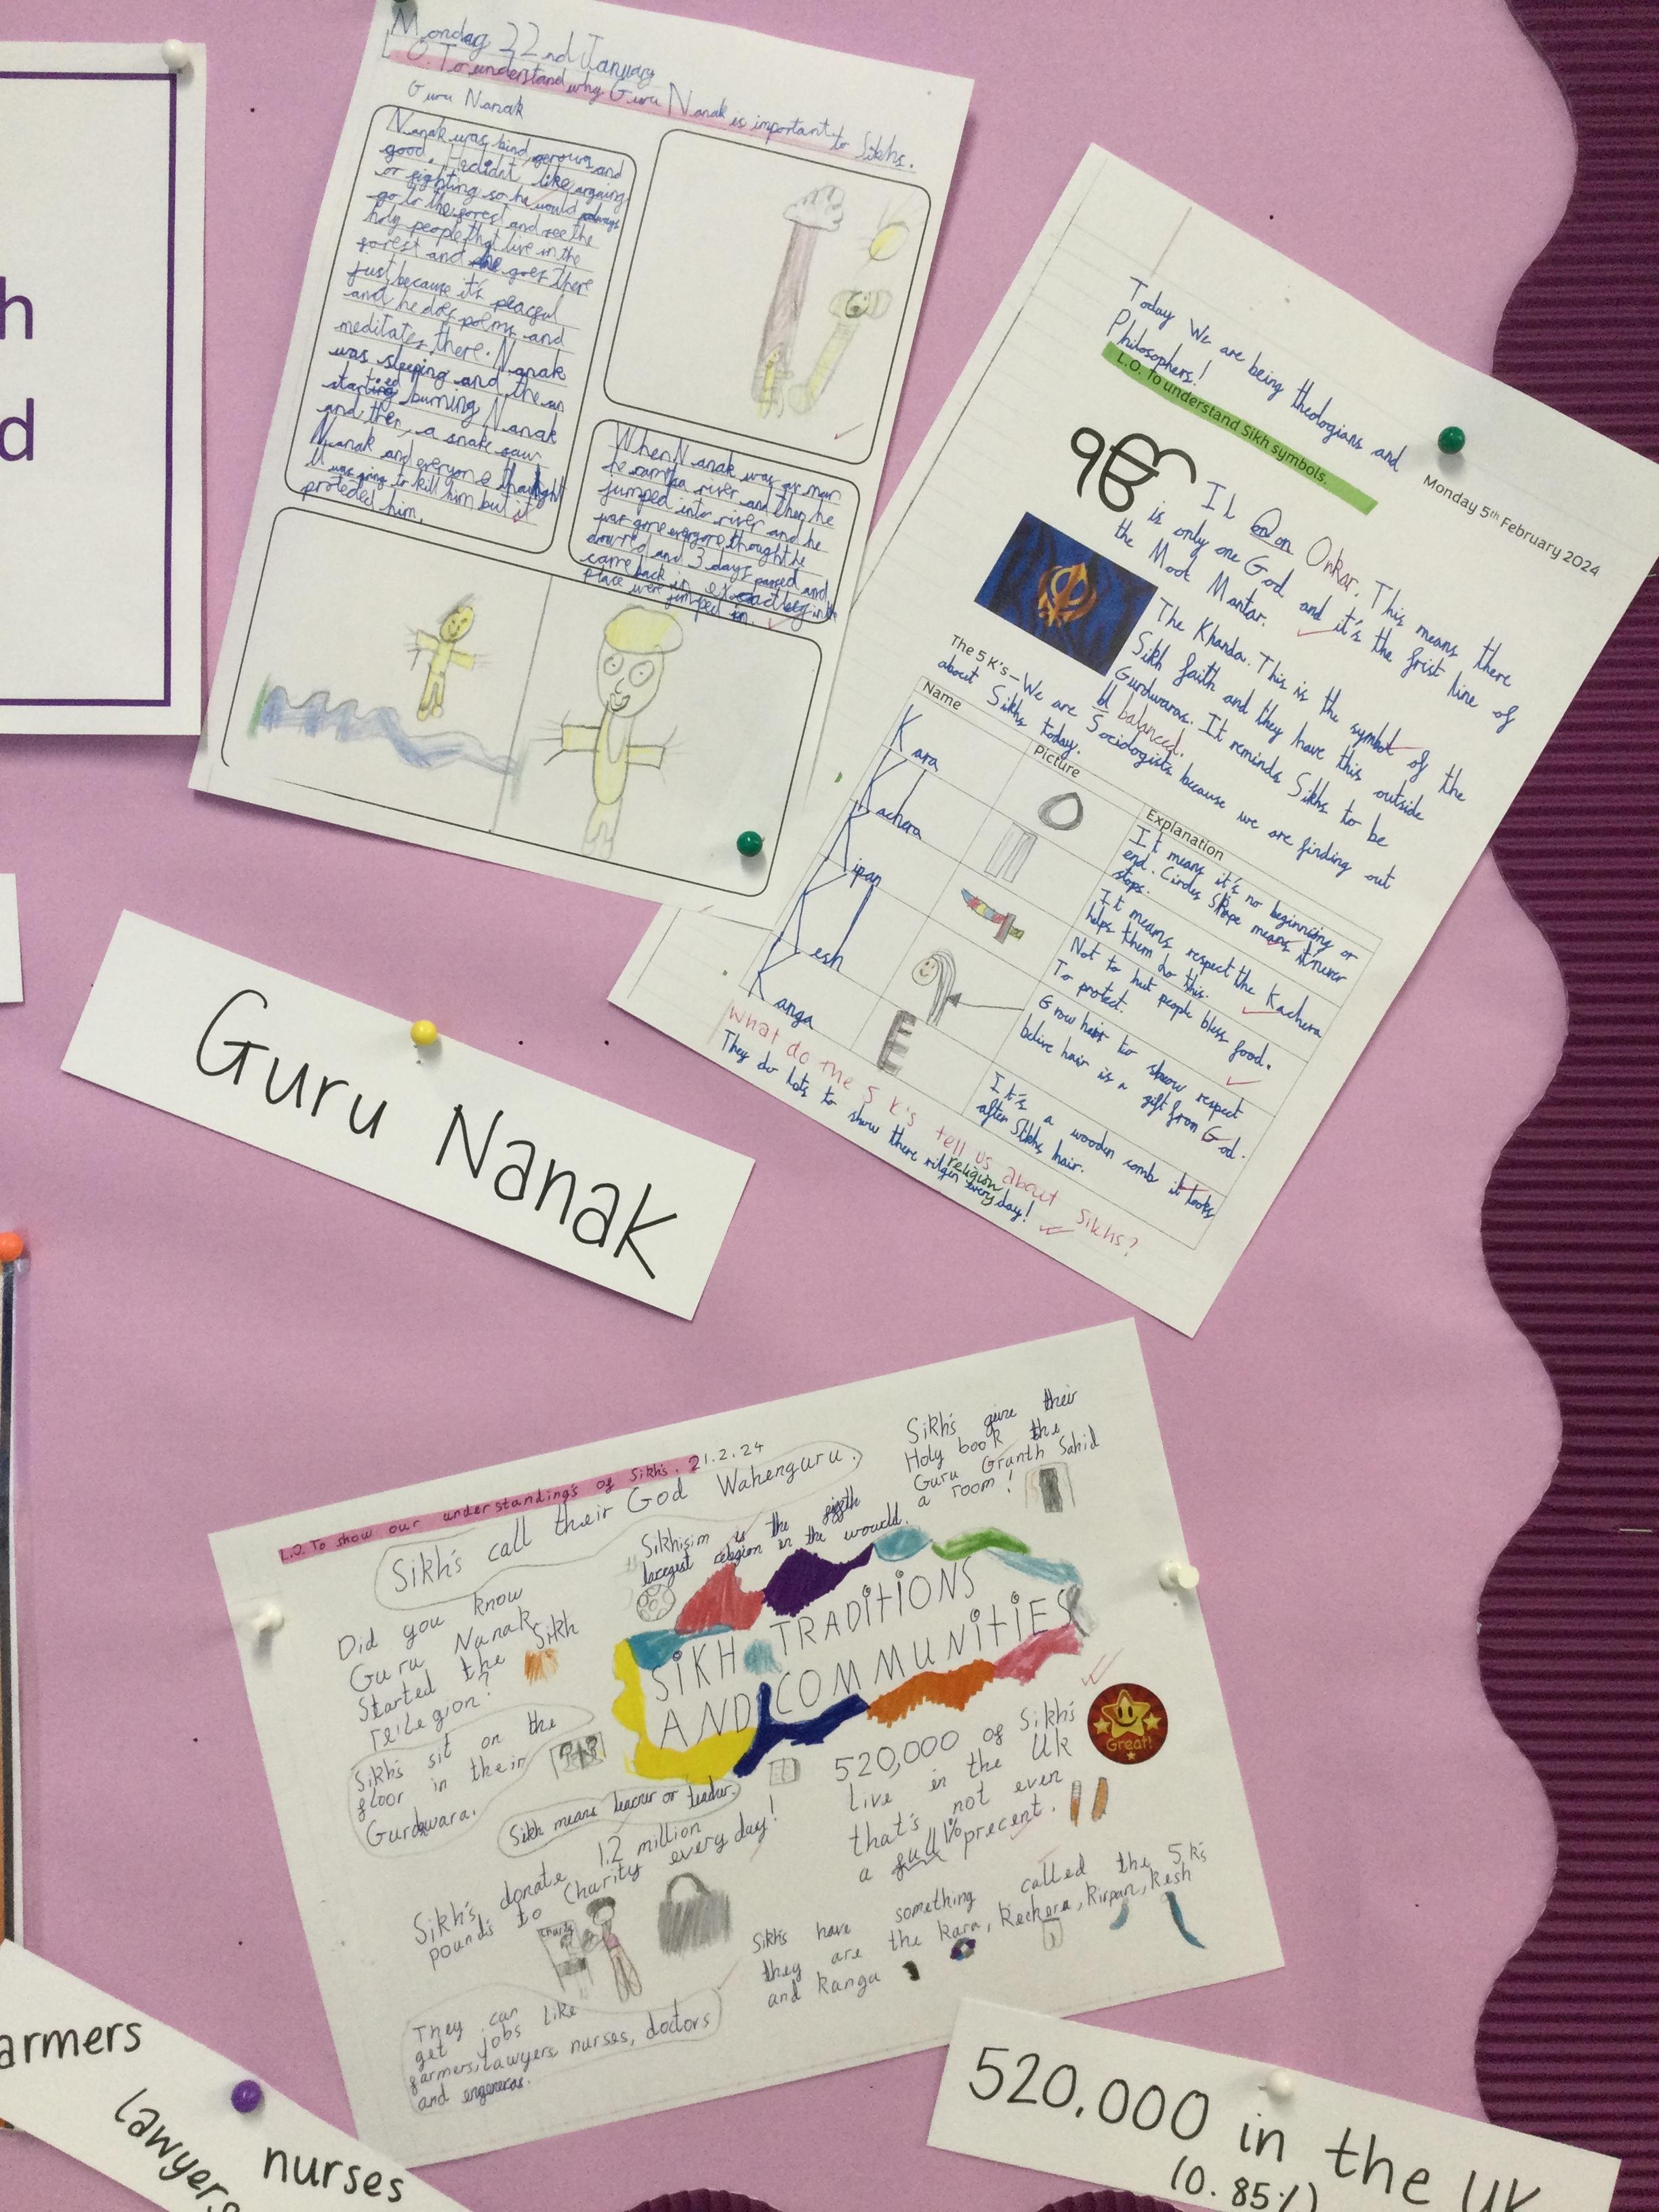 h
d
Monday 22nd January
L.O. To understand why Guru Nanak is important to Sikhs.
Guru Nanak
Nanak was kind, gerous and
good. He didn't like argaing
or fighting so he would always
go to the forest and see the
holy people that live in the
forest and he goes there
just because it's peacful
and he does polms and
meditates there. Nanak
was sleeping and the sun
started burning Nanak
and then, a snake saw
Nanak and everyone thought
it was going to kill him but it
proteded him.
When Nanak was as man
he ran to a river and then he
jumped into river and he
was gone everyone thought he
dowred and 3 days passed and
came back in exactley in the
place were jumped in.
Today We are being theologians and
Philosophers!
L.O. To understand Sikh symbols.
Monday 5th February 2024
ੴ Ik Onkar. This means there
is only one God and it's the frist line of
the Mool Mantar.
The Khanda. This is the symbol of the
Sikh faith and they have this outside
Gurdwaras. It reminds Sikhs to be
balanced.
The 5 K's – We are Sociologists because we are finding out
about Sikhs today.
Name Picture Explanation
Kara It means it's no beginning or
end. Circles Shape means it never
stops.
Kachera It means respect the Kachera
helps them do this.
Kipan Not to hut people bless food.
To protect.
Kesh Grow hair to show respect
belive hair is a gift from God.
Kanga It's a wooden comb it looks
after Sikhs hair.
What do the 5 K's tell us about Sikhs?
They do lots to show there religion every day!
religion
Guru Nanak
L.O. To show our understandings of Sikh's. 21.2.24
Sikh's call their God Wahenguru.
Sikh's give their
Holy book the
Guru Granth Sahid
a room!
Sikhisim is the fifth
largest religion in the would.
Did you know
Guru Nanak
Started the Sikh
relegion?
SIKH TRADITIONS
AND COMMUNITIES
Sikh's sit on the
floor in their
Gurdwara.
Sikh means learner or leader.
520,000 of Sikh's
Live in the UK
that's not even
a full 1% precent.
Great!
Sikh's donate 1.2 million
pound's to Charity every day!
Charity
Sikh's have something called the 5 k's
they are the kara, Kechera, Kirpan, Kesh
and kanga
They can
get jobs like
farmers, lawyers, nurses, doctors
and engeneras.
armers
lawyers
nurses
520,000 in the UK
(0.85%)